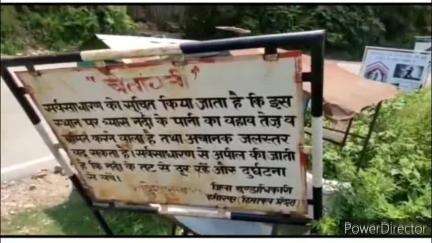 " चेतावनी "
सर्वसाधारण को सूचित किया जाता है कि इस
स्थान पर ब्यास नदी के पानी का वहाव तेज व
करने वाला है तथा अचानक जलस्तर
बढ़ सकता है। सर्वसाधारण से अपील की जाती
है कि नदी के तट से दूर रहें और दुर्घटना
से बचें।
जिला दण्डाधिकारी
हमीरपुर (हिमाचल प्रदेश)
PowerDirector